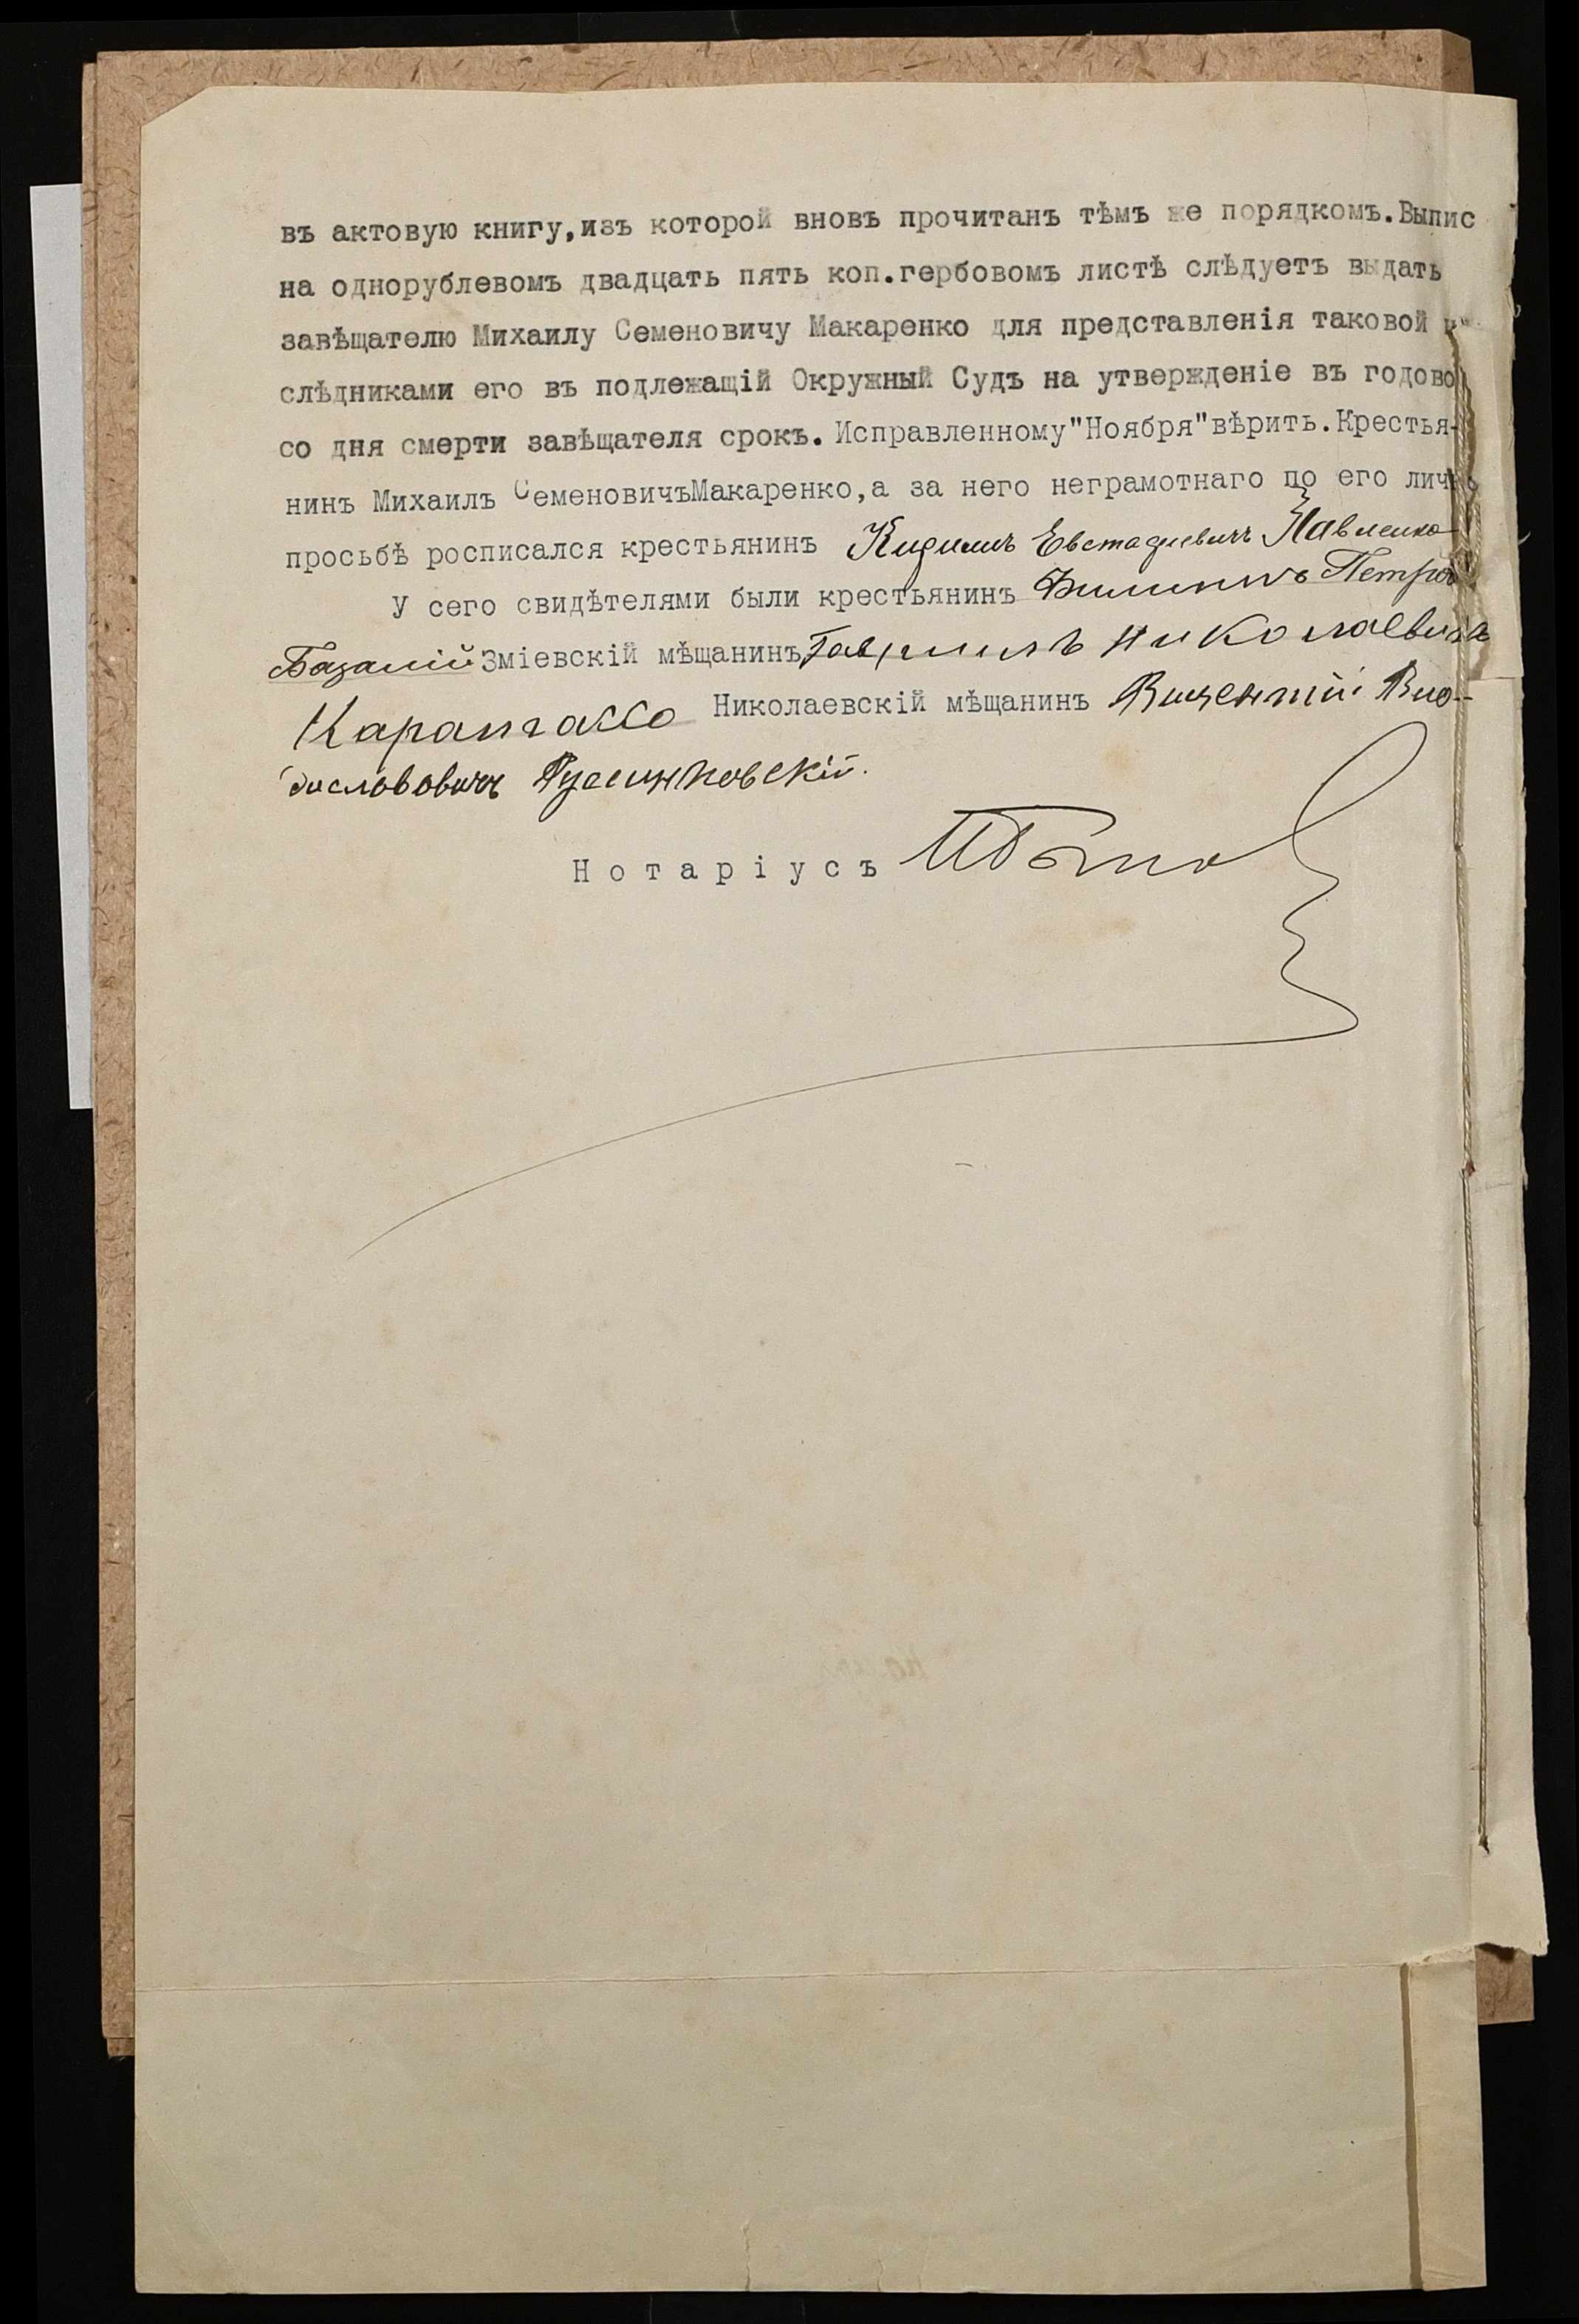 въ актовую книгу,изъ которой вновь прочитанъ тѣмъ же порядкомъ.Выпис
на однорублевомъ двадцать пять коп.гербовомъ листѣ слѣдуетъ выдать
завѣщателю Михаилу Семеновичу Макаренко для представленія таковой
слѣдниками его въ подлежащій Окружный Судъ на утвержденіе въ годово
со дня смерти завѣщателя срокъ. Исправленному"Ноября"вѣрить.Крестья-
нинъ Михаилъ СеменовичъМакаренко,а за него неграмотнаго по его личн
просьбѣ росписался крестьянинъ Евстафиевичъ Павленко
У сего свидѣтелями были крестьянинъ Филиппъ Петров
Базалій Зміевскій мѣщанинъ Гавриилъ Николаевичъ
Карангассо Николаевскій мѣщанинъ Викентій Вла-
диславовичъ
Нотаріусъ